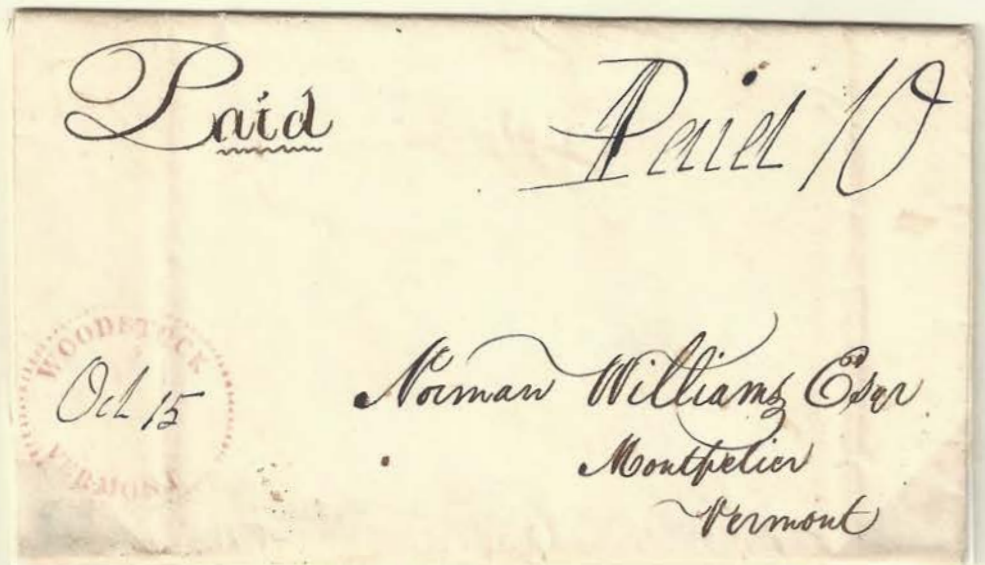 Paid
Paid 10
WOODSTOCK
Oct 15
VERMONT
Norman Williams Esqr
Montpelier
Vermont